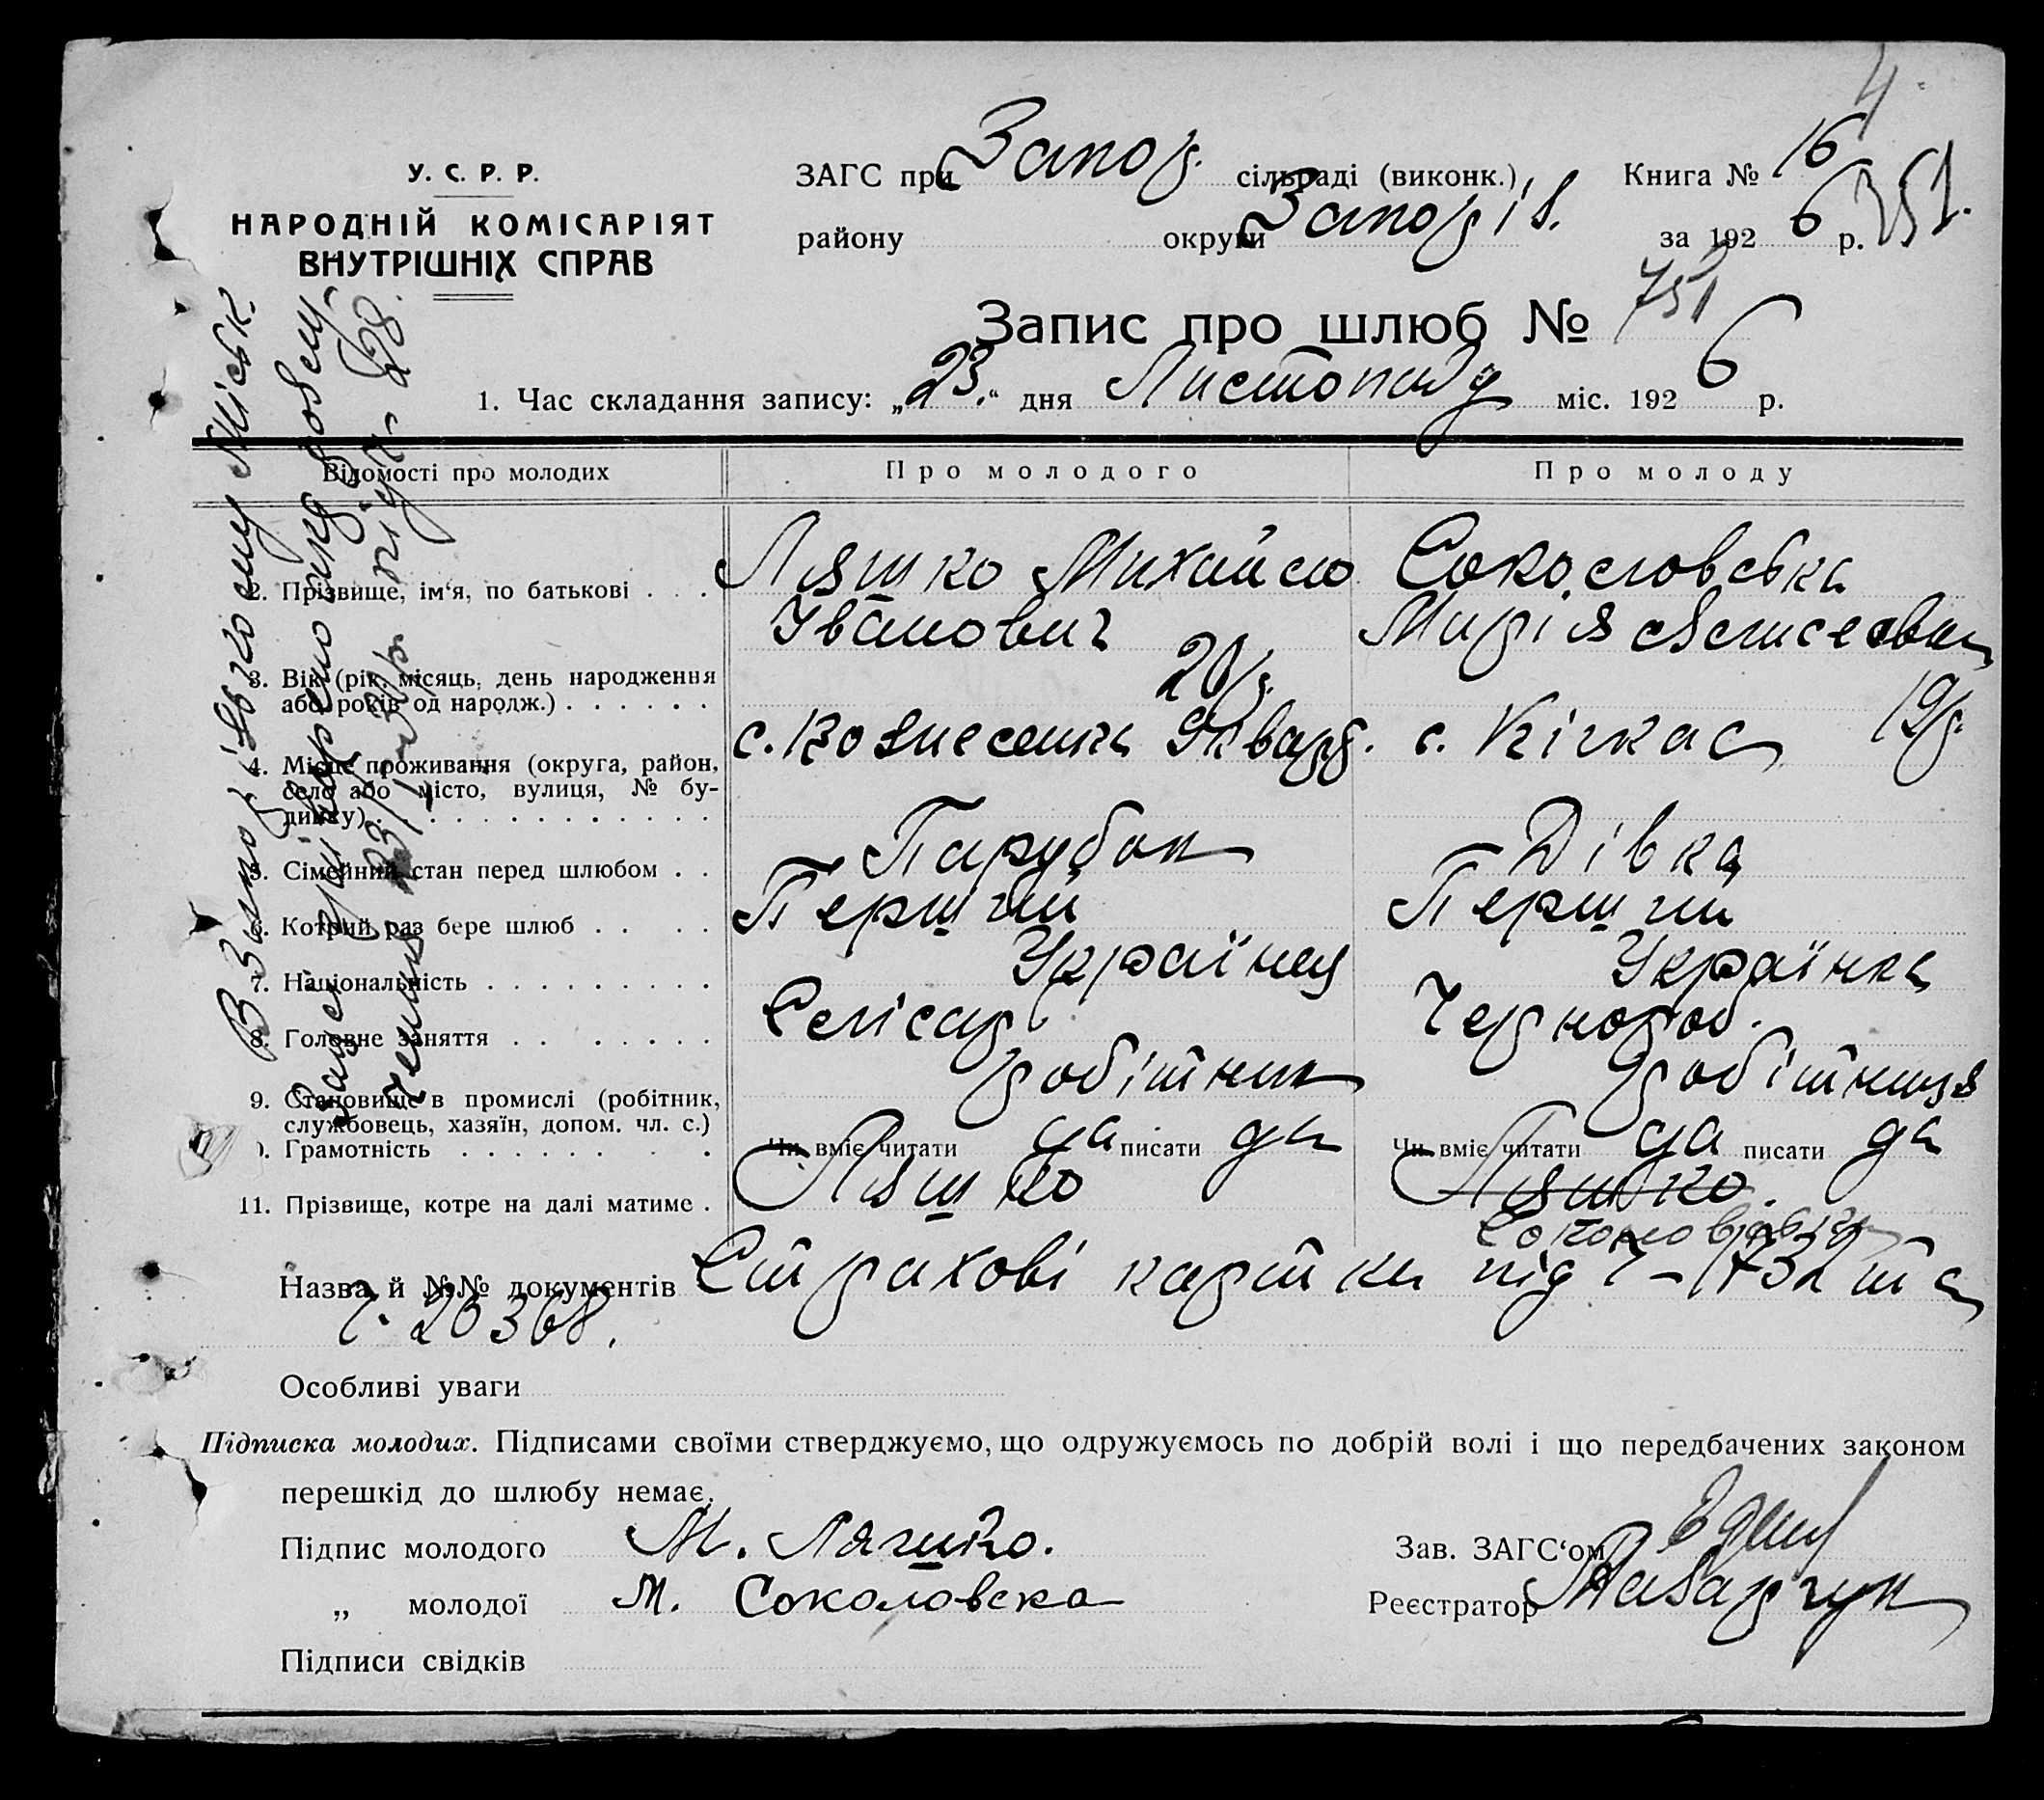 4.
У. С. Р. Р.
НАРОДНІЙ КОМІСАРІЯТ
ВНУТРІШНІХ СПРАВ
ЗАГС при Запор. сільраді (виконк.) Книга № 16
району округи Запоріз. за 192 6 р. 351.
Запис про шлюб № 751
1. Час складання запису: „23." дня Листопаду міс. 192 6 р.
Відомості про молодих Про молодого Про молоду
2. Прізвище, ім'я, по батькові . . . Ляшко Михайло Соколовська
Іванович Марія
3. Вік (рік, місяць, день народження
або років од народж.) . . . . . . 20/р. 19/р.
4. Місце проживання (округа, район,
село або місто, вулиця, № бу-
динку) . . . . . . . . . . . .
с. Вознесенка с. Кічкас
5. Сімейний стан перед шлюбом . . Парубок Дівка
6. Котрий раз бере шлюб . . . . Перший Перший
7. Національність . . . . . . . . . Українец Українка
8. Головне заняття . . . . . . . Слісарь Чернороб.
9. Становище в промислі (робітник,
службовець, хазяїн, допом. чл. с.)
робітник робітниця
). Грамотність . . . . . . . . Чи вміє читати да писати да Чи вміє читати да писати да
11. Прізвище, котре на далі матиме . Ляшко Ляшко.
Соколовська
Назва й №№ документів Страхові картки під ч – 1732 та
ч. 20368.
Особливі уваги
Підписка молодих. Підписами своїми стверджуємо, що одружуємось по добрій волі і що передбачених законом
перешкід до шлюбу немає.
Підпис молодого М. Ляшко. Зав. ЗАГС'ом
„ молодої М. Соколовска Реєстратор
Підписи свідків
В Запорізькому Міськ.